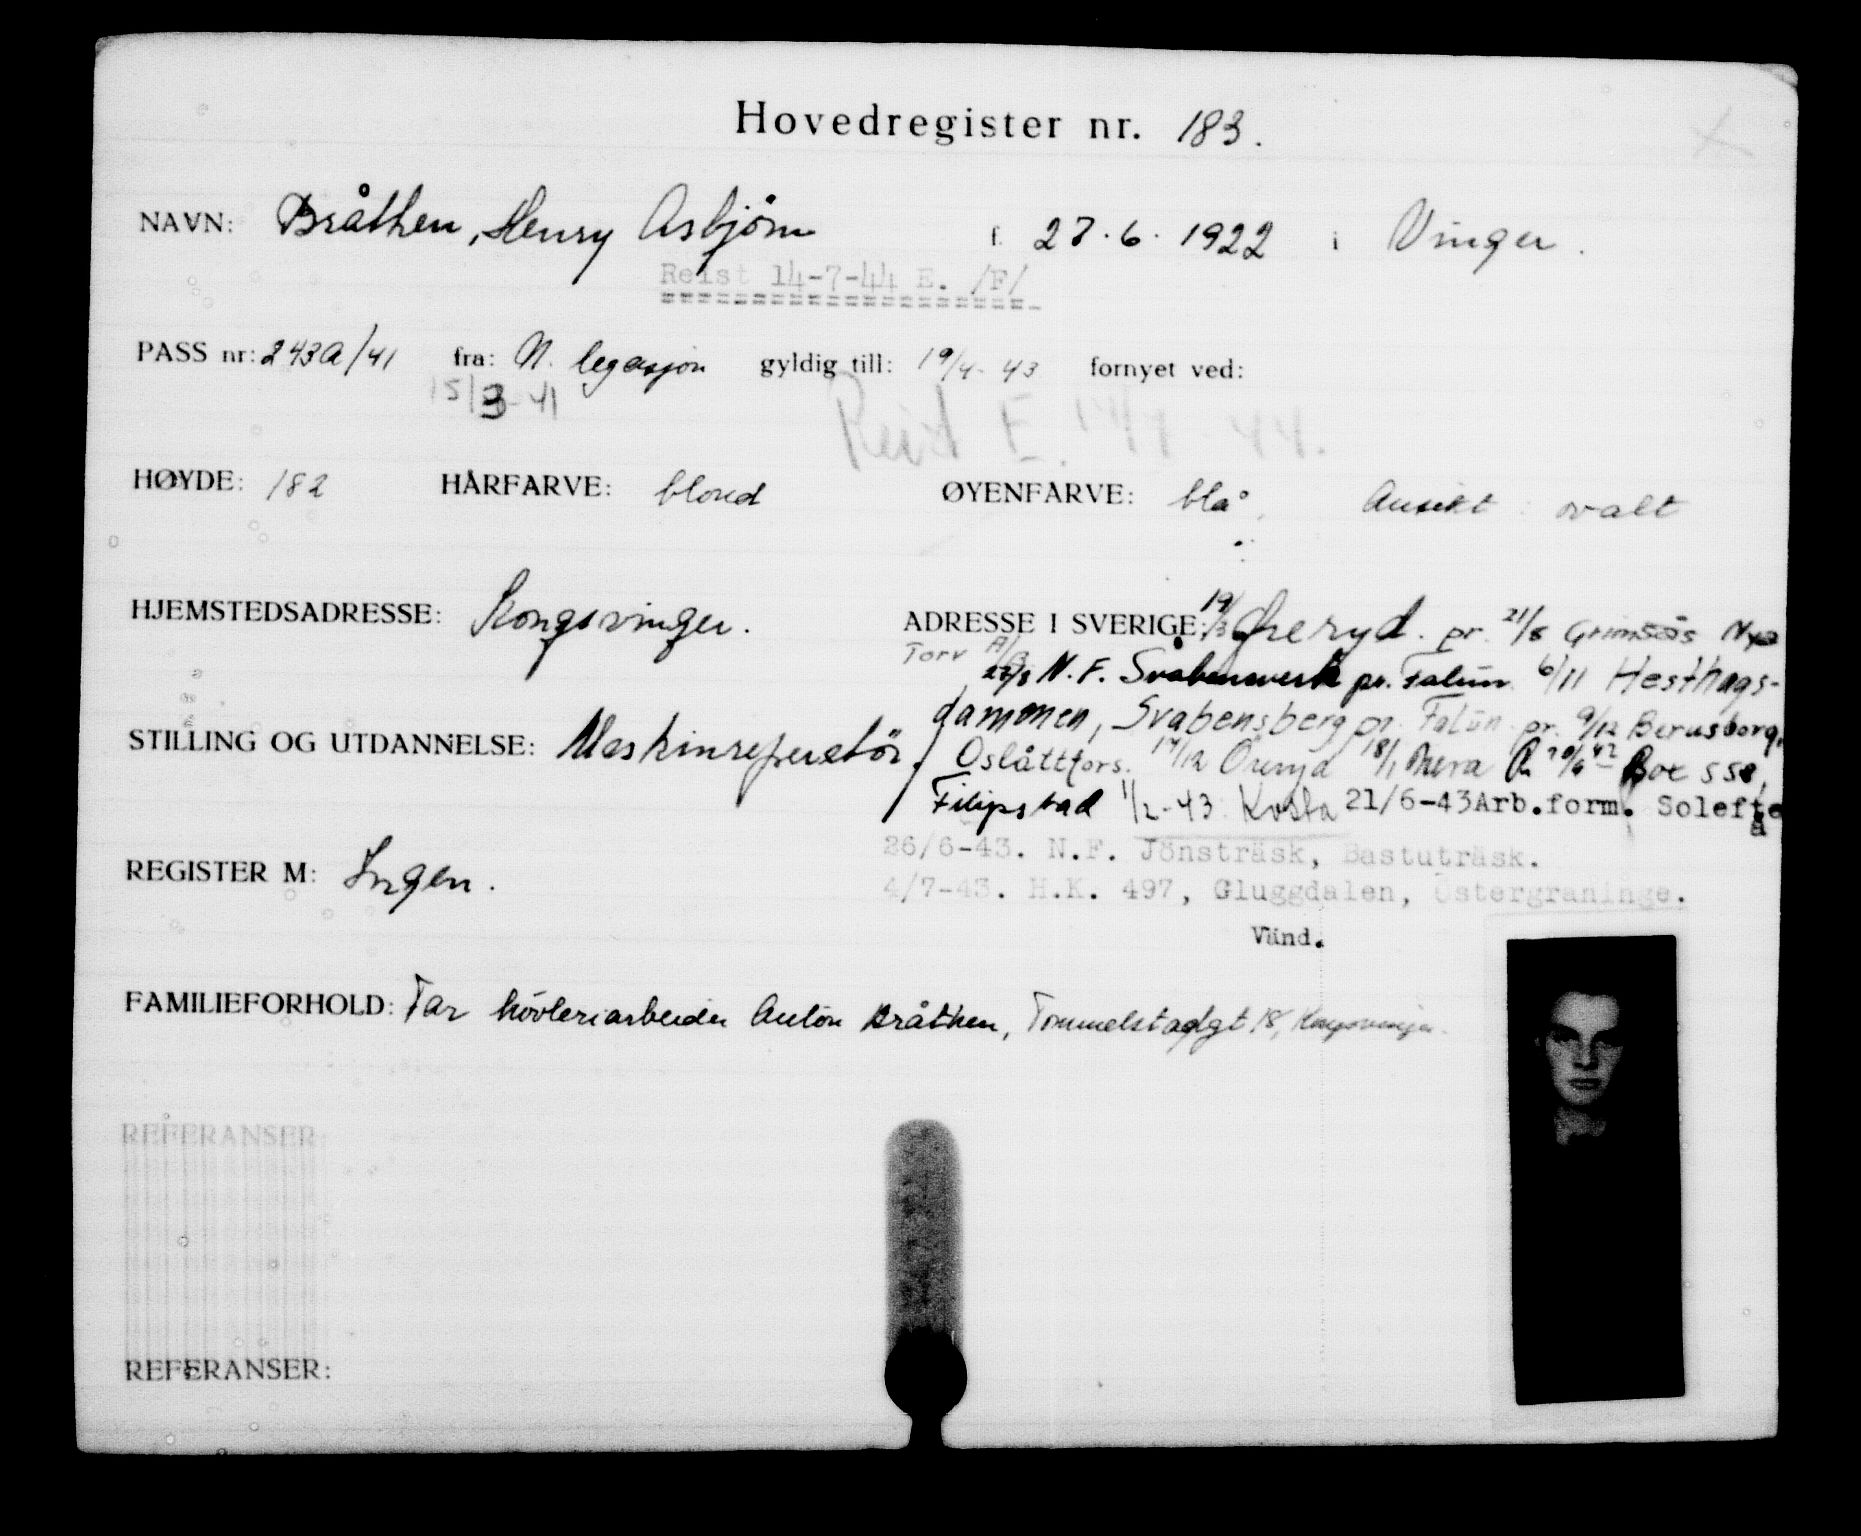 Hovedregister nr. 183.
NAVN: Bråthen, Henry Asbjörn f. 27.6.1922 i Vinger.
Reist 14-7-44 E. /F/
PASS nr: 243A/41 fra: N. legasjon gyldig till: 19/4-43 fornyet ved:
15/3-41
Reist E. 14/7-44.
HØYDE: 182 HÅRFARVE: blond ØYENFARVE: blå, Ansikt ovalt
HJEMSTEDSADRESSE: Kongsvinger. ADRESSE I SVERIGE: 19/3 Öreryd. pr. 21/8 Grimsås Nya
Torv
22/8 N. F. Svabensverk pr. Falun 6/11 Hesthags-
dammen, Svabensberg pr. Falun pr. 9/12
STILLING OG UTDANNELSE: Maskinreparatör. Oslättfors. 14/12 Öreryd 18/1 Box 558,
Filipstad 1/2-43 Kosta 21/6-43 Arb.form. Solefteå
26/6-43. N.F. Jönsträsk, Bastuträsk.
REGISTER M: Ingen. 4/7-43. H.K. 497, Gluggdalen, Östergraninge.
Vänd.
FAMILIEFORHOLD: Far hövleriarbeider Anton Bråthen, Tommelstadgt 18, Kongsvinger.
REFERANSER:
REFERANSER: